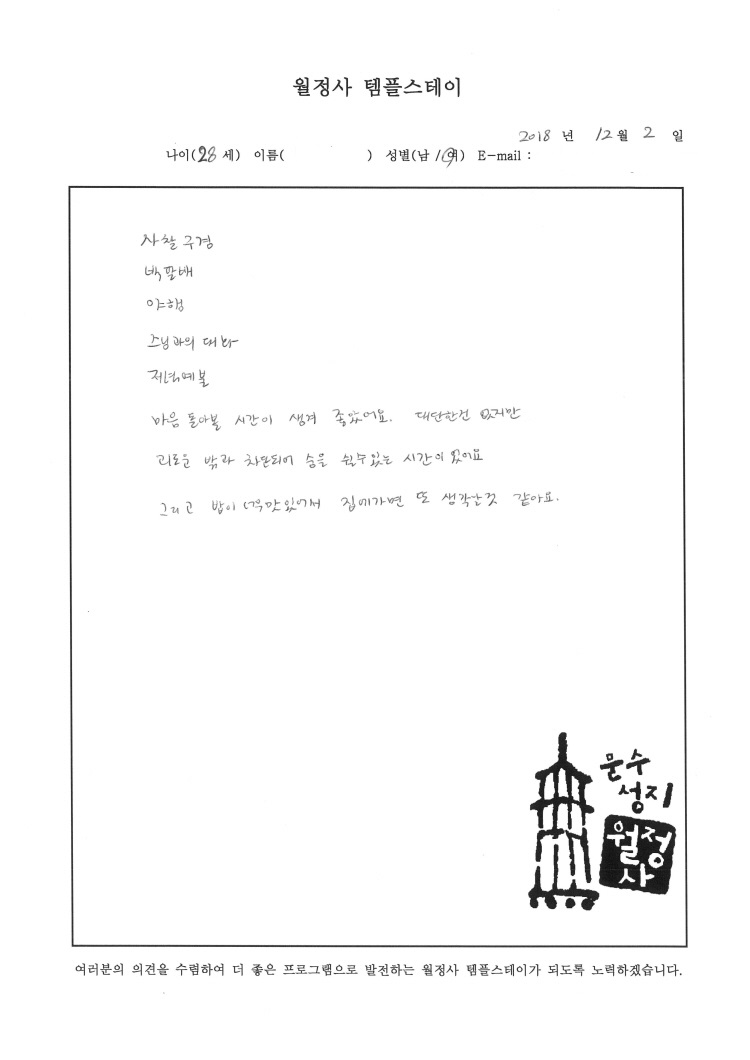 월정사 템플스테이
2018 년 12 월 2 일
나이(28 세) 이름( ) 성별(남 /여) E-mail :
사찰구경
백팔배
야행
스님과의 대화
저녁예불
마음 돌아볼 시간이 생겨 좋았어요. 대단한건 없지만
괴로운 밖과 차단되어 숨을 쉴수있는 시간이 었어요
그리고 밥이 너무맛있어서 집에가면 또 생각날것 같아요.
문수
성지
월정
사
여러분의 의견을 수렴하여 더 좋은 프로그램으로 발전하는 월정사 템플스테이가 되도록 노력하겠습니다.